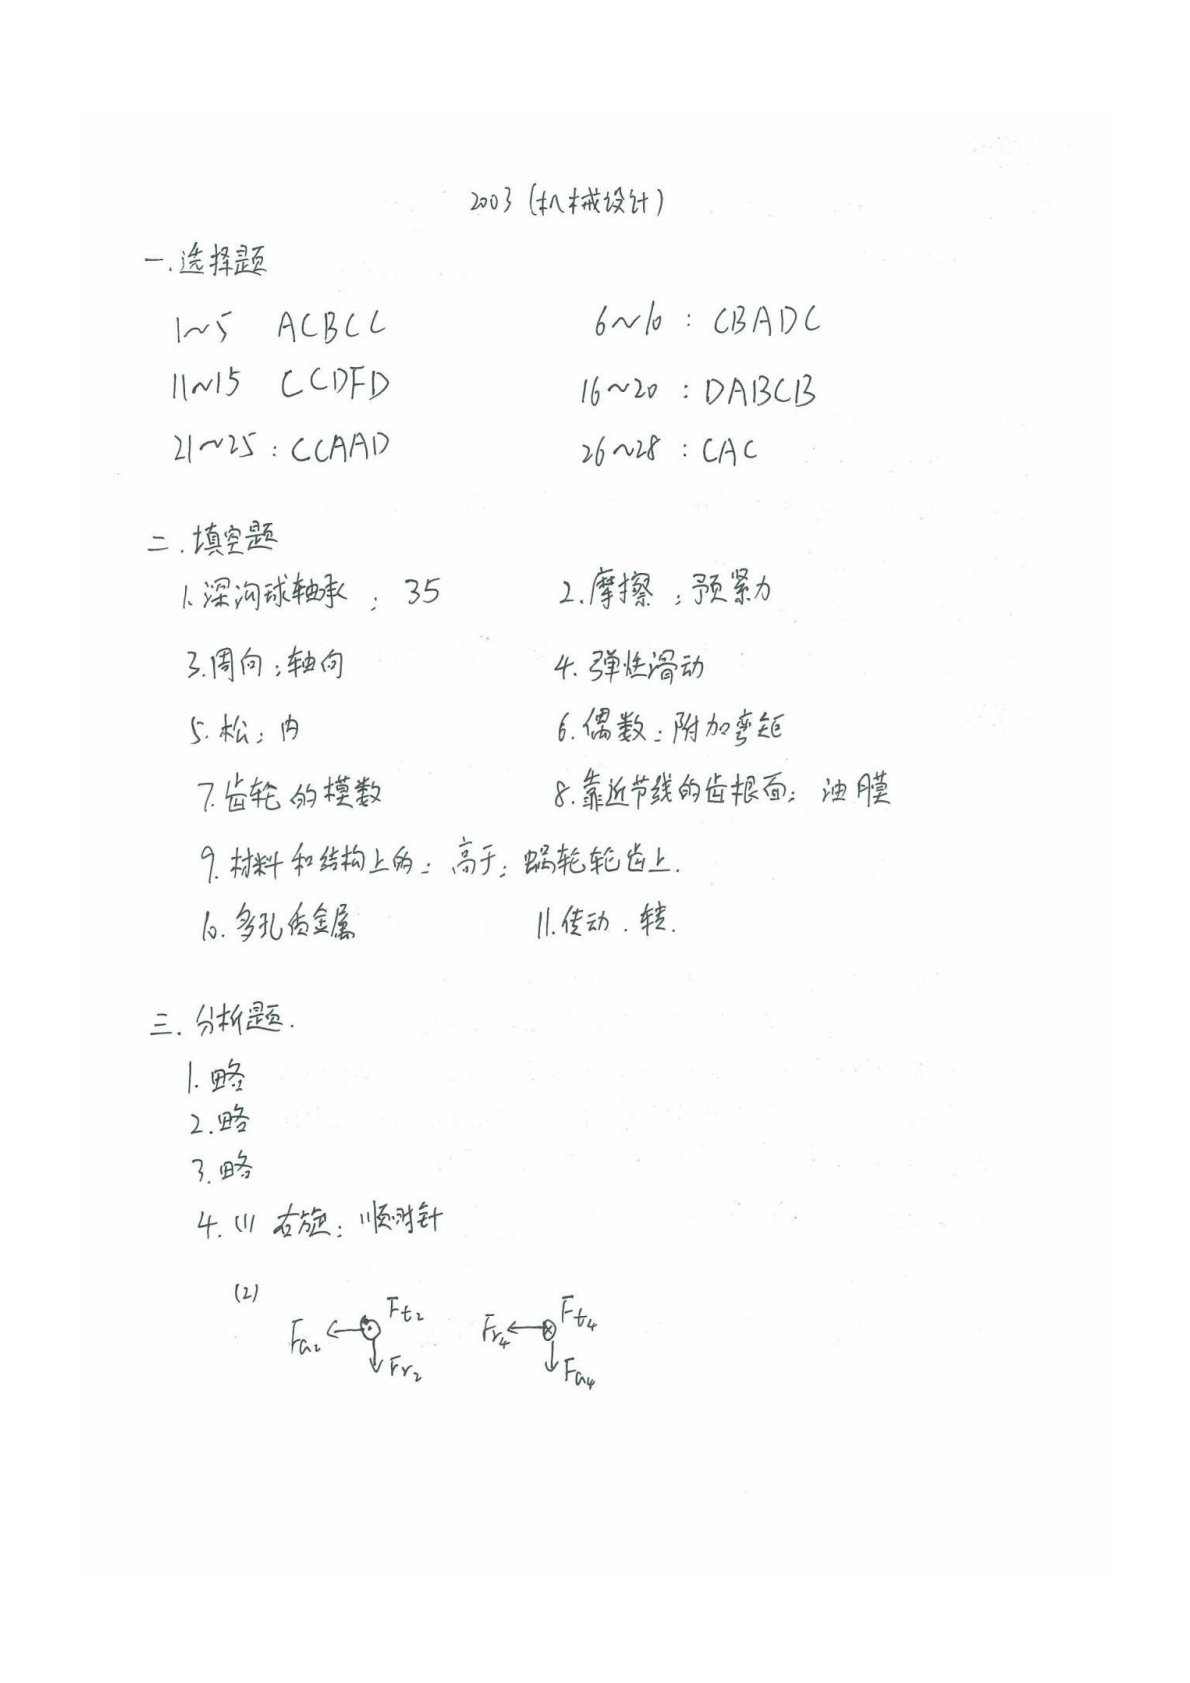 2003 (机械设计)
一.选择题
1~5 ACBCC 6~10: CBADC
11~15 CCDFD 16~20: DABCB
21~25: CCAAD 26~28: CAC
二.填空题
1.深沟球轴承; 35 2.摩擦;预紧力
3.周向;轴向 4.弹性滑动
5.松;内 6.偶数;附加弯矩
7.齿轮的模数 8.靠近节线的齿根面;油膜
9.材料和结构上的;高于;蜗轮轮齿上.
10.多孔质金属 11.传动.转.
三.分析题.
1.略
2.略
3.略
4.(1)右旋;顺时针
(2)
Fa2 Ft2 Fr2 Fr4 Ft4 Fa4